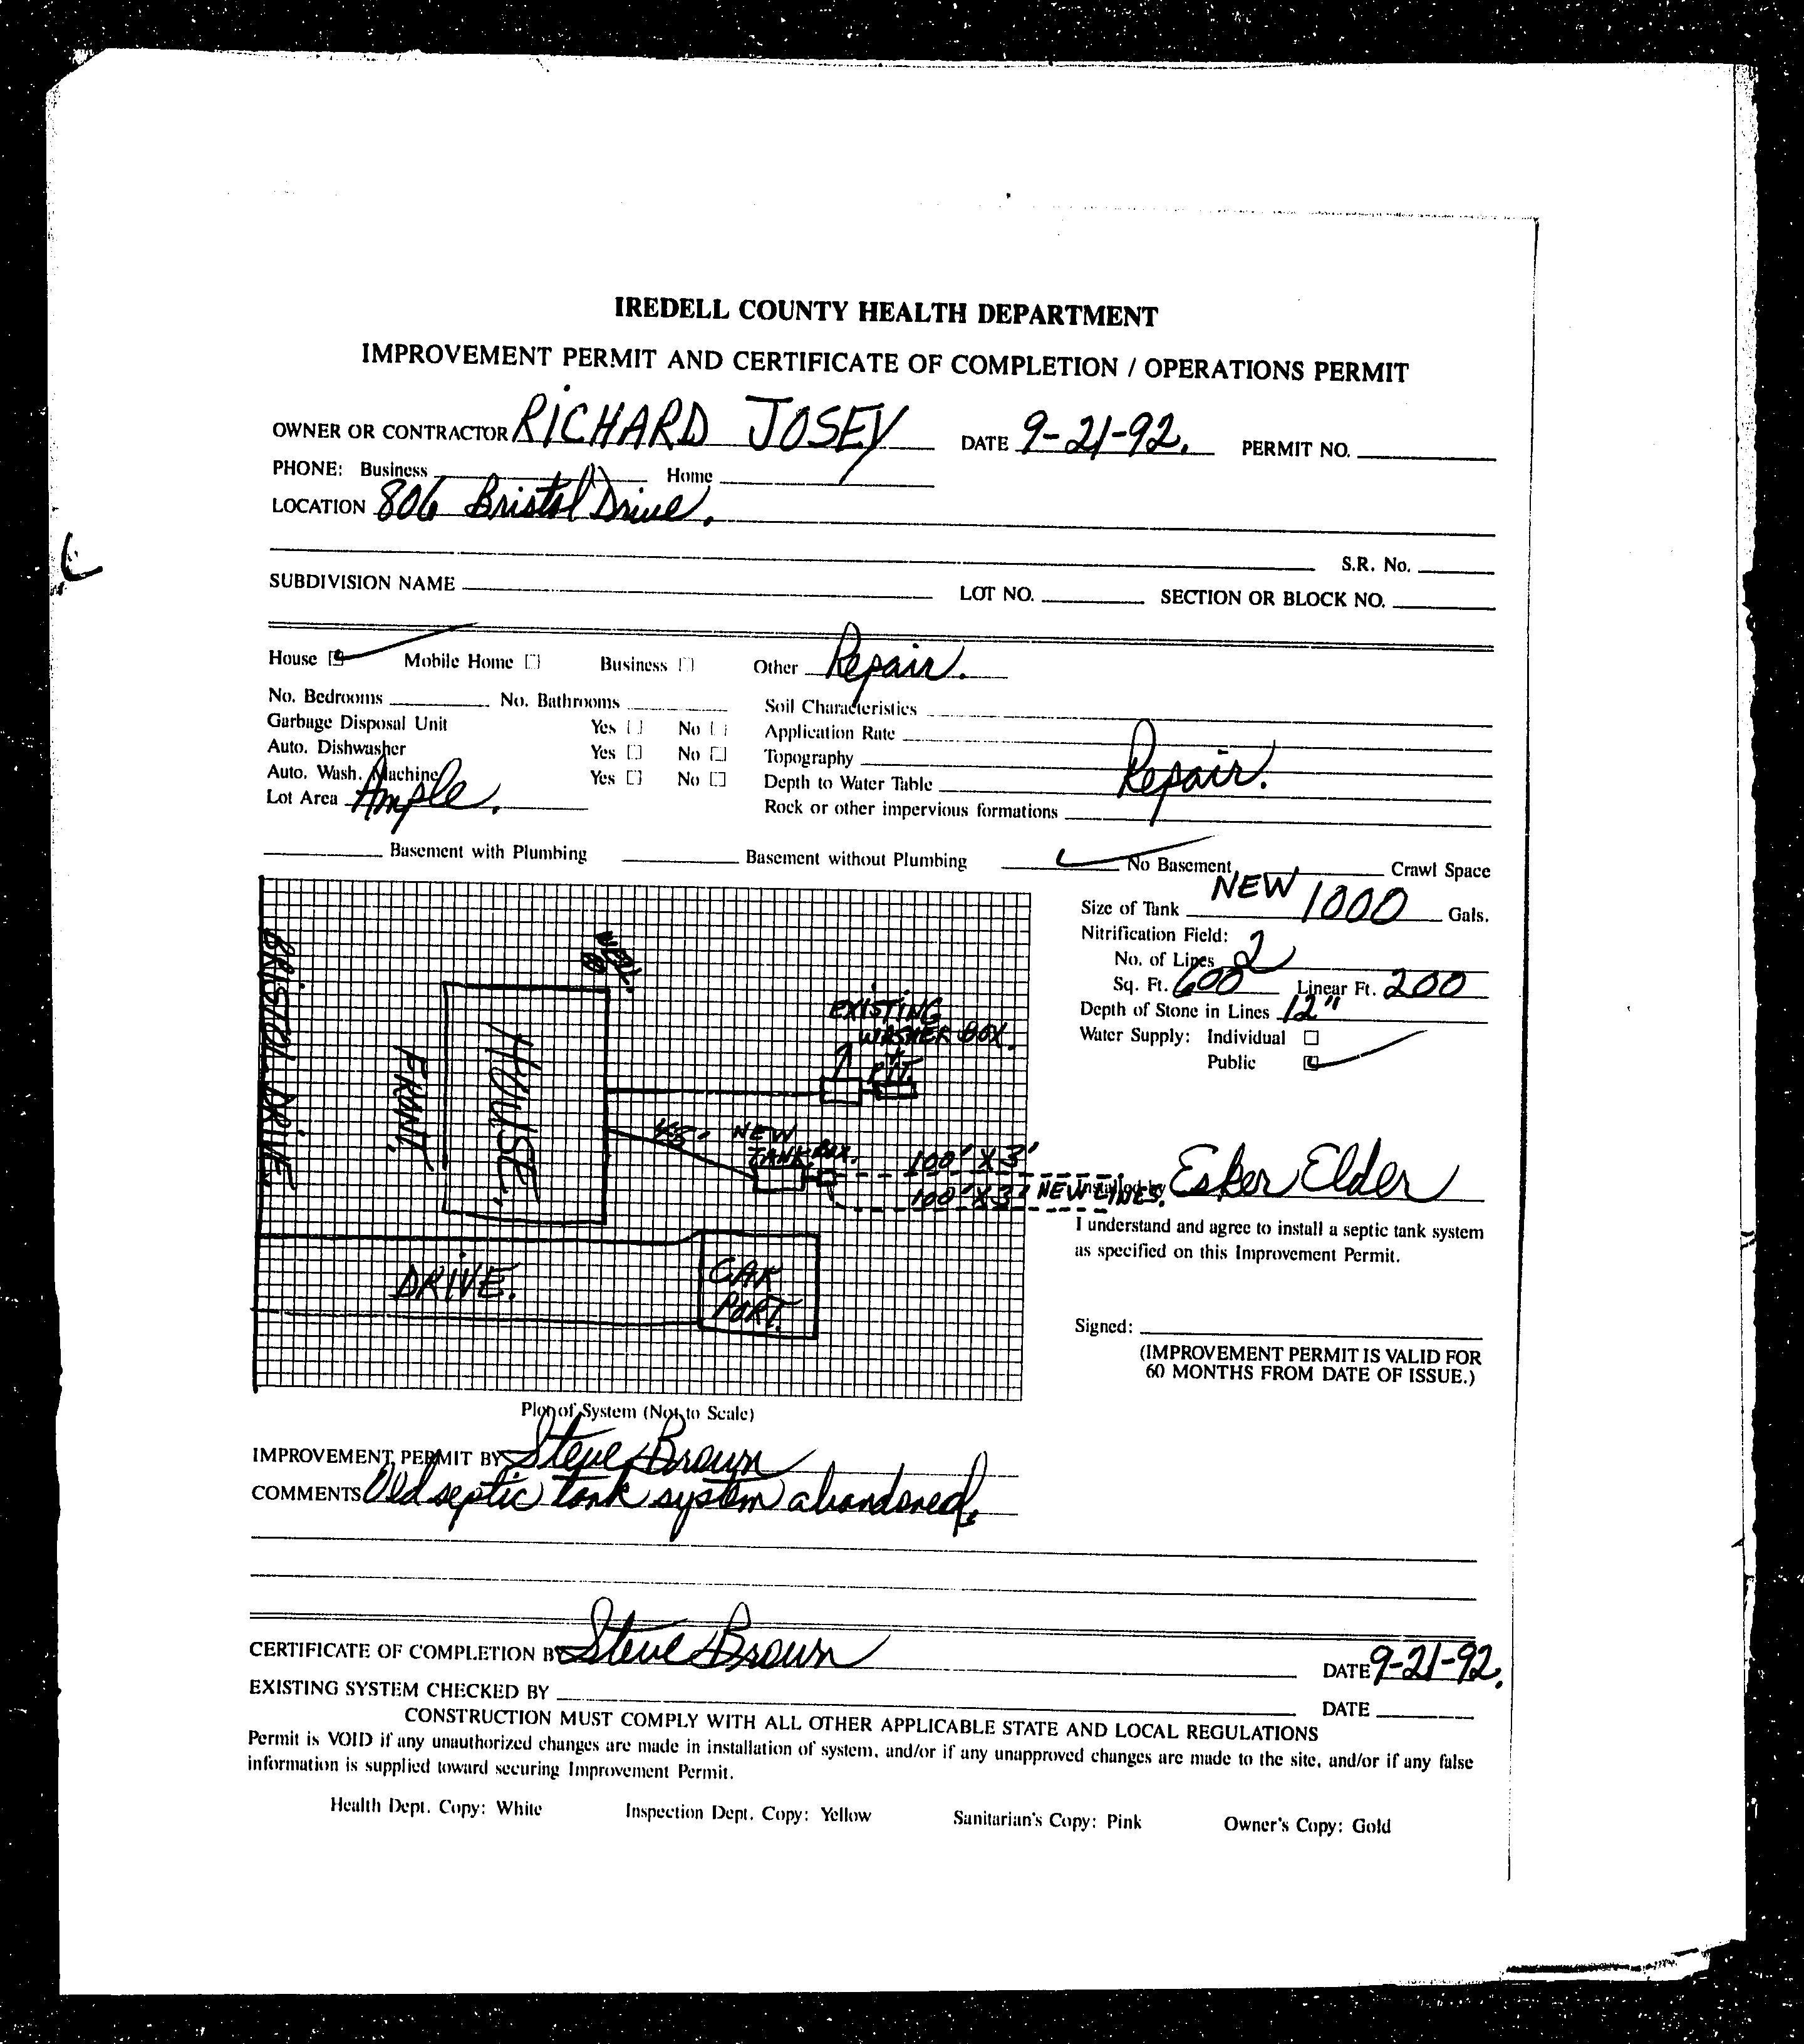 IREDELL COUNTY HEALTH DEPARTMENT
IMPROVEMENT PERMIT AND CERTIFICATE OF COMPLETION / OPERATIONS PERMIT
OWNER OR CONTRACTOR RICHARD JOSEY DATE 9-21-92. PERMIT NO.
PHONE: Business Home
LOCATION 806 Bristol Drive.
S.R. No.
SUBDIVISION NAME LOT NO. SECTION OR BLOCK NO.
House Mobile Home Business Other Repair.
No. Bedrooms No. Bathrooms Soil Characteristics
Garbage Disposal Unit Yes No Application Rate
Auto. Dishwasher Yes No Topography
Auto. Wash. Machine Yes No Depth to Water Table Repair.
Lot Area Ample. Rock or other impervious formations
Basement with Plumbing Basement without Plumbing No Basement Crawl Space
Size of Tank NEW 1000 Gals.
Nitrification Field:
No. of Lines 2
Sq. Ft. 600 Linear Ft. 200
Depth of Stone in Lines 12"
Water Supply: Individual
Public
BRISTOL DRIVE
FRONT.
HOUSE.
WELL.
EXISTING
WASHER BOX.
+
PIT.
45' NEW
TANK. BOX.
100' X 3'
100' X 3' NEW LINES.
DRIVE.
CAR
PORT.
Installed by Esker Elder
I understand and agree to install a septic tank system
as specified on this Improvement Permit.
Signed:
(IMPROVEMENT PERMIT IS VALID FOR
60 MONTHS FROM DATE OF ISSUE.)
Plot of System (Not to Scale)
IMPROVEMENT PERMIT BY Steve Brown
COMMENTS Old septic tank system abandoned.
CERTIFICATE OF COMPLETION BY Steve Brown DATE 9-21-92.
EXISTING SYSTEM CHECKED BY DATE
CONSTRUCTION MUST COMPLY WITH ALL OTHER APPLICABLE STATE AND LOCAL REGULATIONS
Permit is VOID if any unauthorized changes are made in installation of system, and/or if any unapproved changes are made to the site, and/or if any false
information is supplied toward securing Improvement Permit.
Health Dept. Copy: White Inspection Dept. Copy: Yellow Sanitarian's Copy: Pink Owner's Copy: Gold